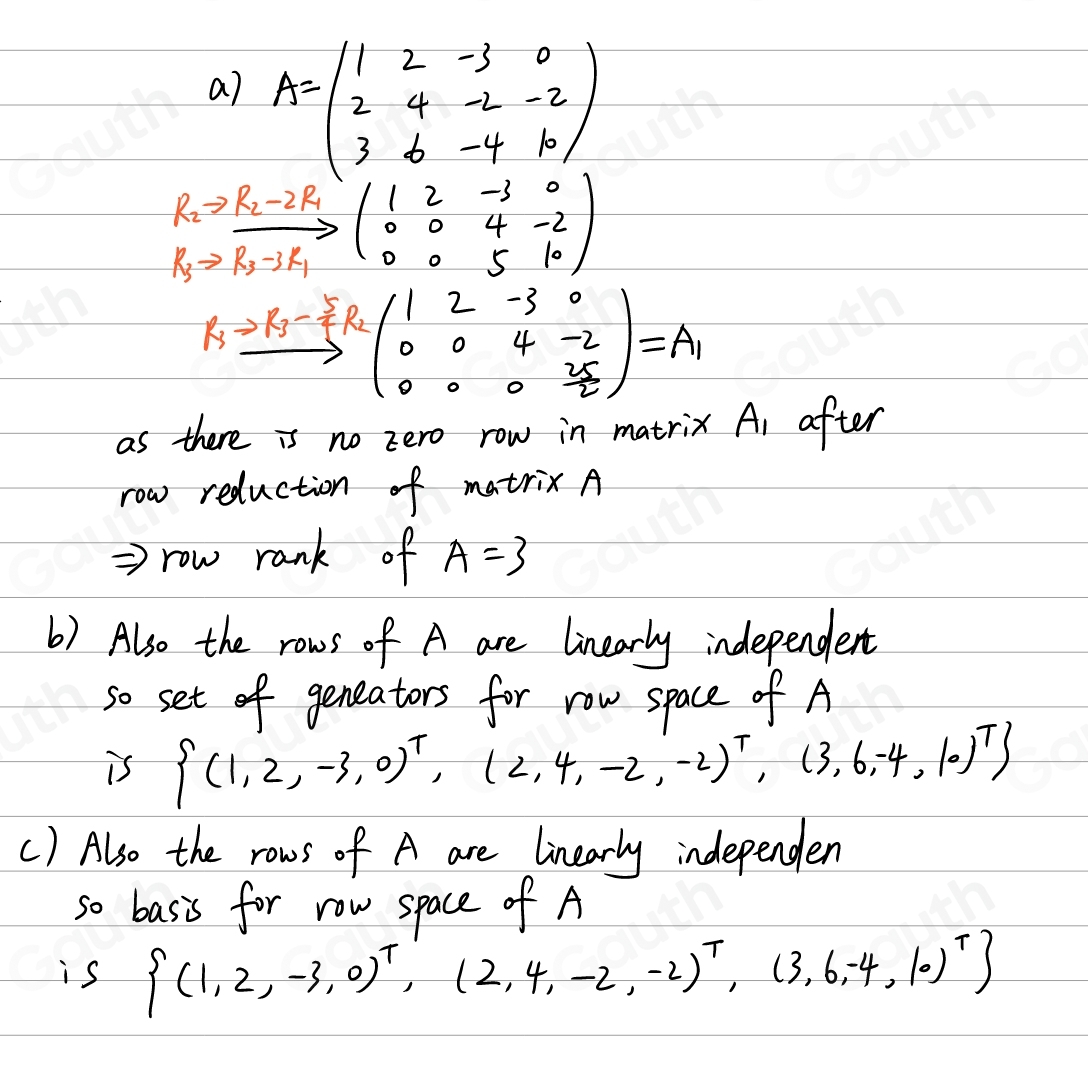 a) A= ( 1 2 -3 0
2 4 -2 -2
3 6 -4 10 )
R₂→R₂-2R₁
R₃→R₃-3R₁
( 1 2 -3 0
0 0 4 -2
0 0 5 10 )
R₃→R₃-5/4R₂
( 1 2 -3 0
0 0 4 -2
0 0 0 25/2 ) =A₁
as there is no zero row in matrix A₁ after
row reduction of matrix A
⇒ row rank of A=3
b) Also the rows of A are linearly independent
so set of geneators for row space of A
is {(1,2,-3,0)ᵀ, (2,4,-2,-2)ᵀ, (3,6,-4,10)ᵀ}
c) Also the rows of A are linearly independen
so basis for row space of A
is {(1,2,-3,0)ᵀ, (2,4,-2,-2)ᵀ, (3,6,-4,10)ᵀ}
Gauth